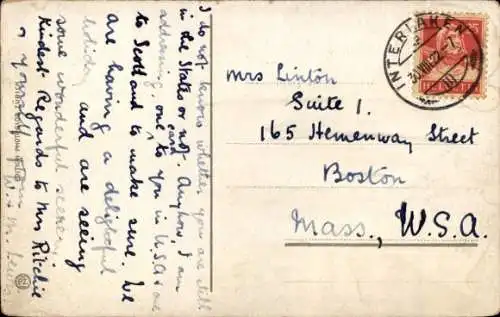 I do not know whether you are still
in the States or not. Anyhow, I am
addressing one card to you in U.S.A & one
to Scotland to make sure. We
are having a delightful
holiday and are seeing
some wonderful scenery.
Kindest Regards to Mrs Ritchie
& Yourself
INTERLAKEN
30.VIII.27.-7
Mrs Linton
Suite 1.
165 Hemenway Street
Boston
Mass., U.S.A.